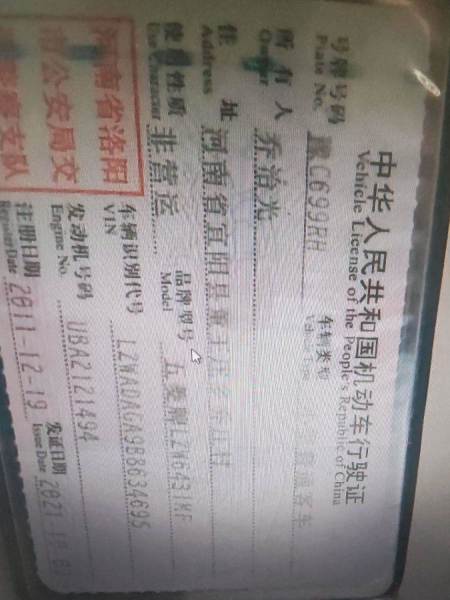 中华人民共和国机动车行驶证
Vehicle License of the People's Republic of China
号牌号码 豫C699RH 车辆类型
Plate No. Vehicle Type
普通客车
所有人 乔治光
Owner
住址 河南省宜阳县
Address
使用性质 非营运 品牌型号 五菱牌LZW6431MF
Use Character Model
河南省洛阳
市公安局交
支队
车辆识别代号 LZWADAGA9B8634695
VIN
发动机号码 UBA2121494
Engine No.
注册日期 2011-12-19 发证日期 2021
Register Date Issue Date